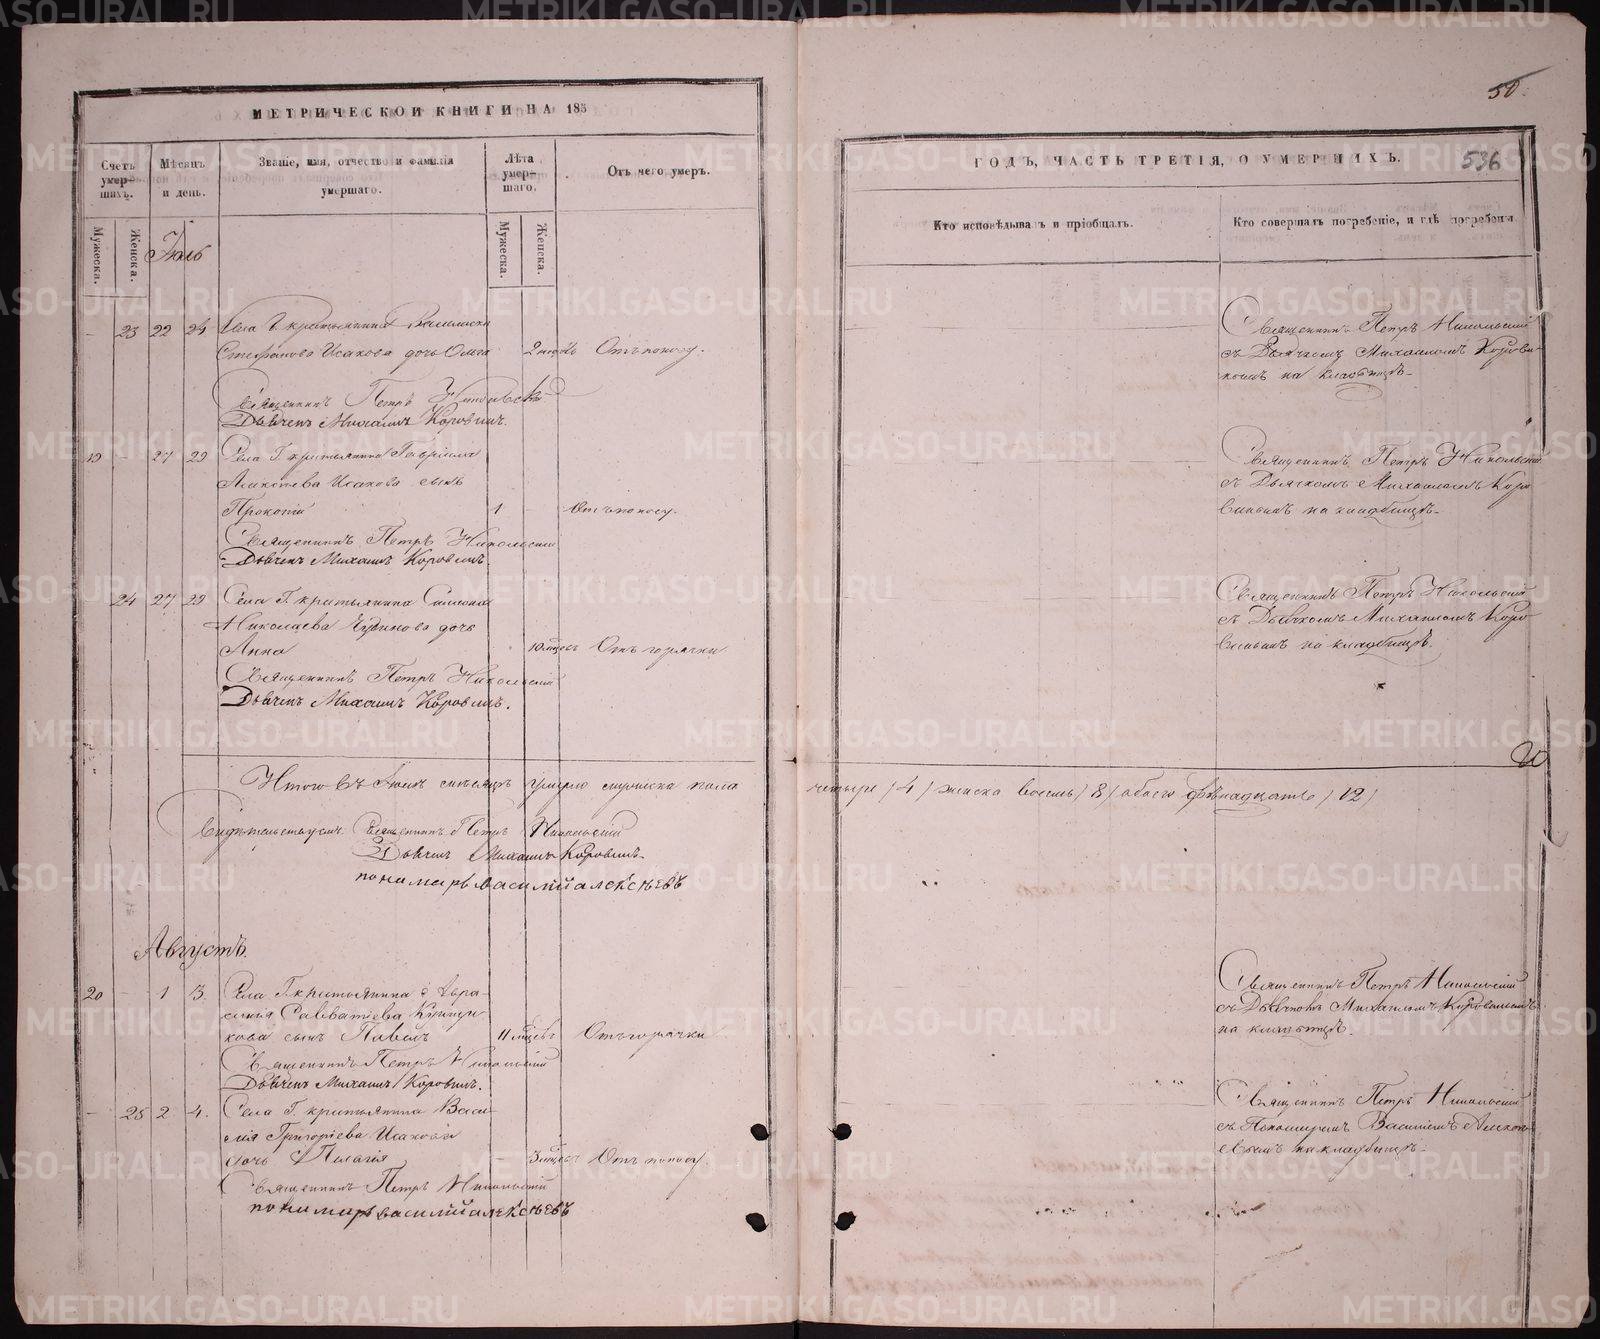 МЕТРИЧЕСКОЙ КНИГИ НА 185
Счетъ умер-
шихъ.
Мѣсяцъ
и день.
Званіе, имя, отчество и фамилія
умершаго.
Лѣта
умер-
шаго.
Отъ чего умеръ.
Мужеска.
Женска.
Мужеска.
Женска.
Іюль
23 22 24 Села Г. крестьянина
Стефанова Исакова дочь Ольга 2 Отъ поносу.
Священникъ Петръ Никольскій
Дьячекъ Михаилъ Коровинъ.
19 27 29 Села Г. крестьянина Гавріила
Исакова сынъ
Прокопій 1 Отъ поносу.
Священникъ Петръ Никольскій
Дьячекъ Михаилъ Коровинъ.
24 27 29 Села Г. крестьянина
Николаева дочь
Анна 10 мѣсец Отъ горячки
Священникъ Петръ Никольскій
Дьячекъ Михаилъ Коровинъ.
Итого въ Іюлѣ мѣсяцѣ умерло мужеска пола
Свидѣтельствуемъ: Священникъ Петръ Никольскій
Дьячекъ Михаилъ Коровинъ.
пономарь василій алексѣевъ
Августъ.
20 1 3. Села Г. крестьянина
Савватіева
сынъ Павелъ 11 мѣсец Отъ горячки
Священникъ Петръ Никольскій
Дьячекъ Михаилъ Коровинъ.
25 2 4. Села Г. крестьянина Васи-
лія Григоріева Исакова
дочь Пелагія 3 мѣсец Отъ поносу.
Священникъ Петръ Никольскій
пономарь василій алексѣевъ
50.
ГОДЪ, ЧАСТЬ ТРЕТІЯ, О УМЕРШИХЪ.
536
Кто исповѣдывалъ и пріобщалъ.
Кто совершалъ погребеніе, и гдѣ погребены.
Священникъ Петръ Никольскій
съ Дьячкомъ Михаиломъ Корови-
нымъ на кладбищѣ.
Священникъ Петръ Никольскій
съ Дьячкомъ Михаиломъ Коро-
винымъ на кладбищѣ.
Священникъ Петръ Никольскій
съ Дьячкомъ Михаиломъ Коро-
винымъ на кладбищѣ.
четыре /4/ женска восемь /8/ обоего двѣнадцать /12/
Священникъ Петръ Никольскій
съ Дьячкомъ Михаиломъ Коровинымъ
на кладбищѣ.
Священникъ Петръ Никольскій
съ Пономаремъ Василіемъ Алексѣ-
евымъ на кладбищѣ.
METRIKI.GASO-URAL.RU